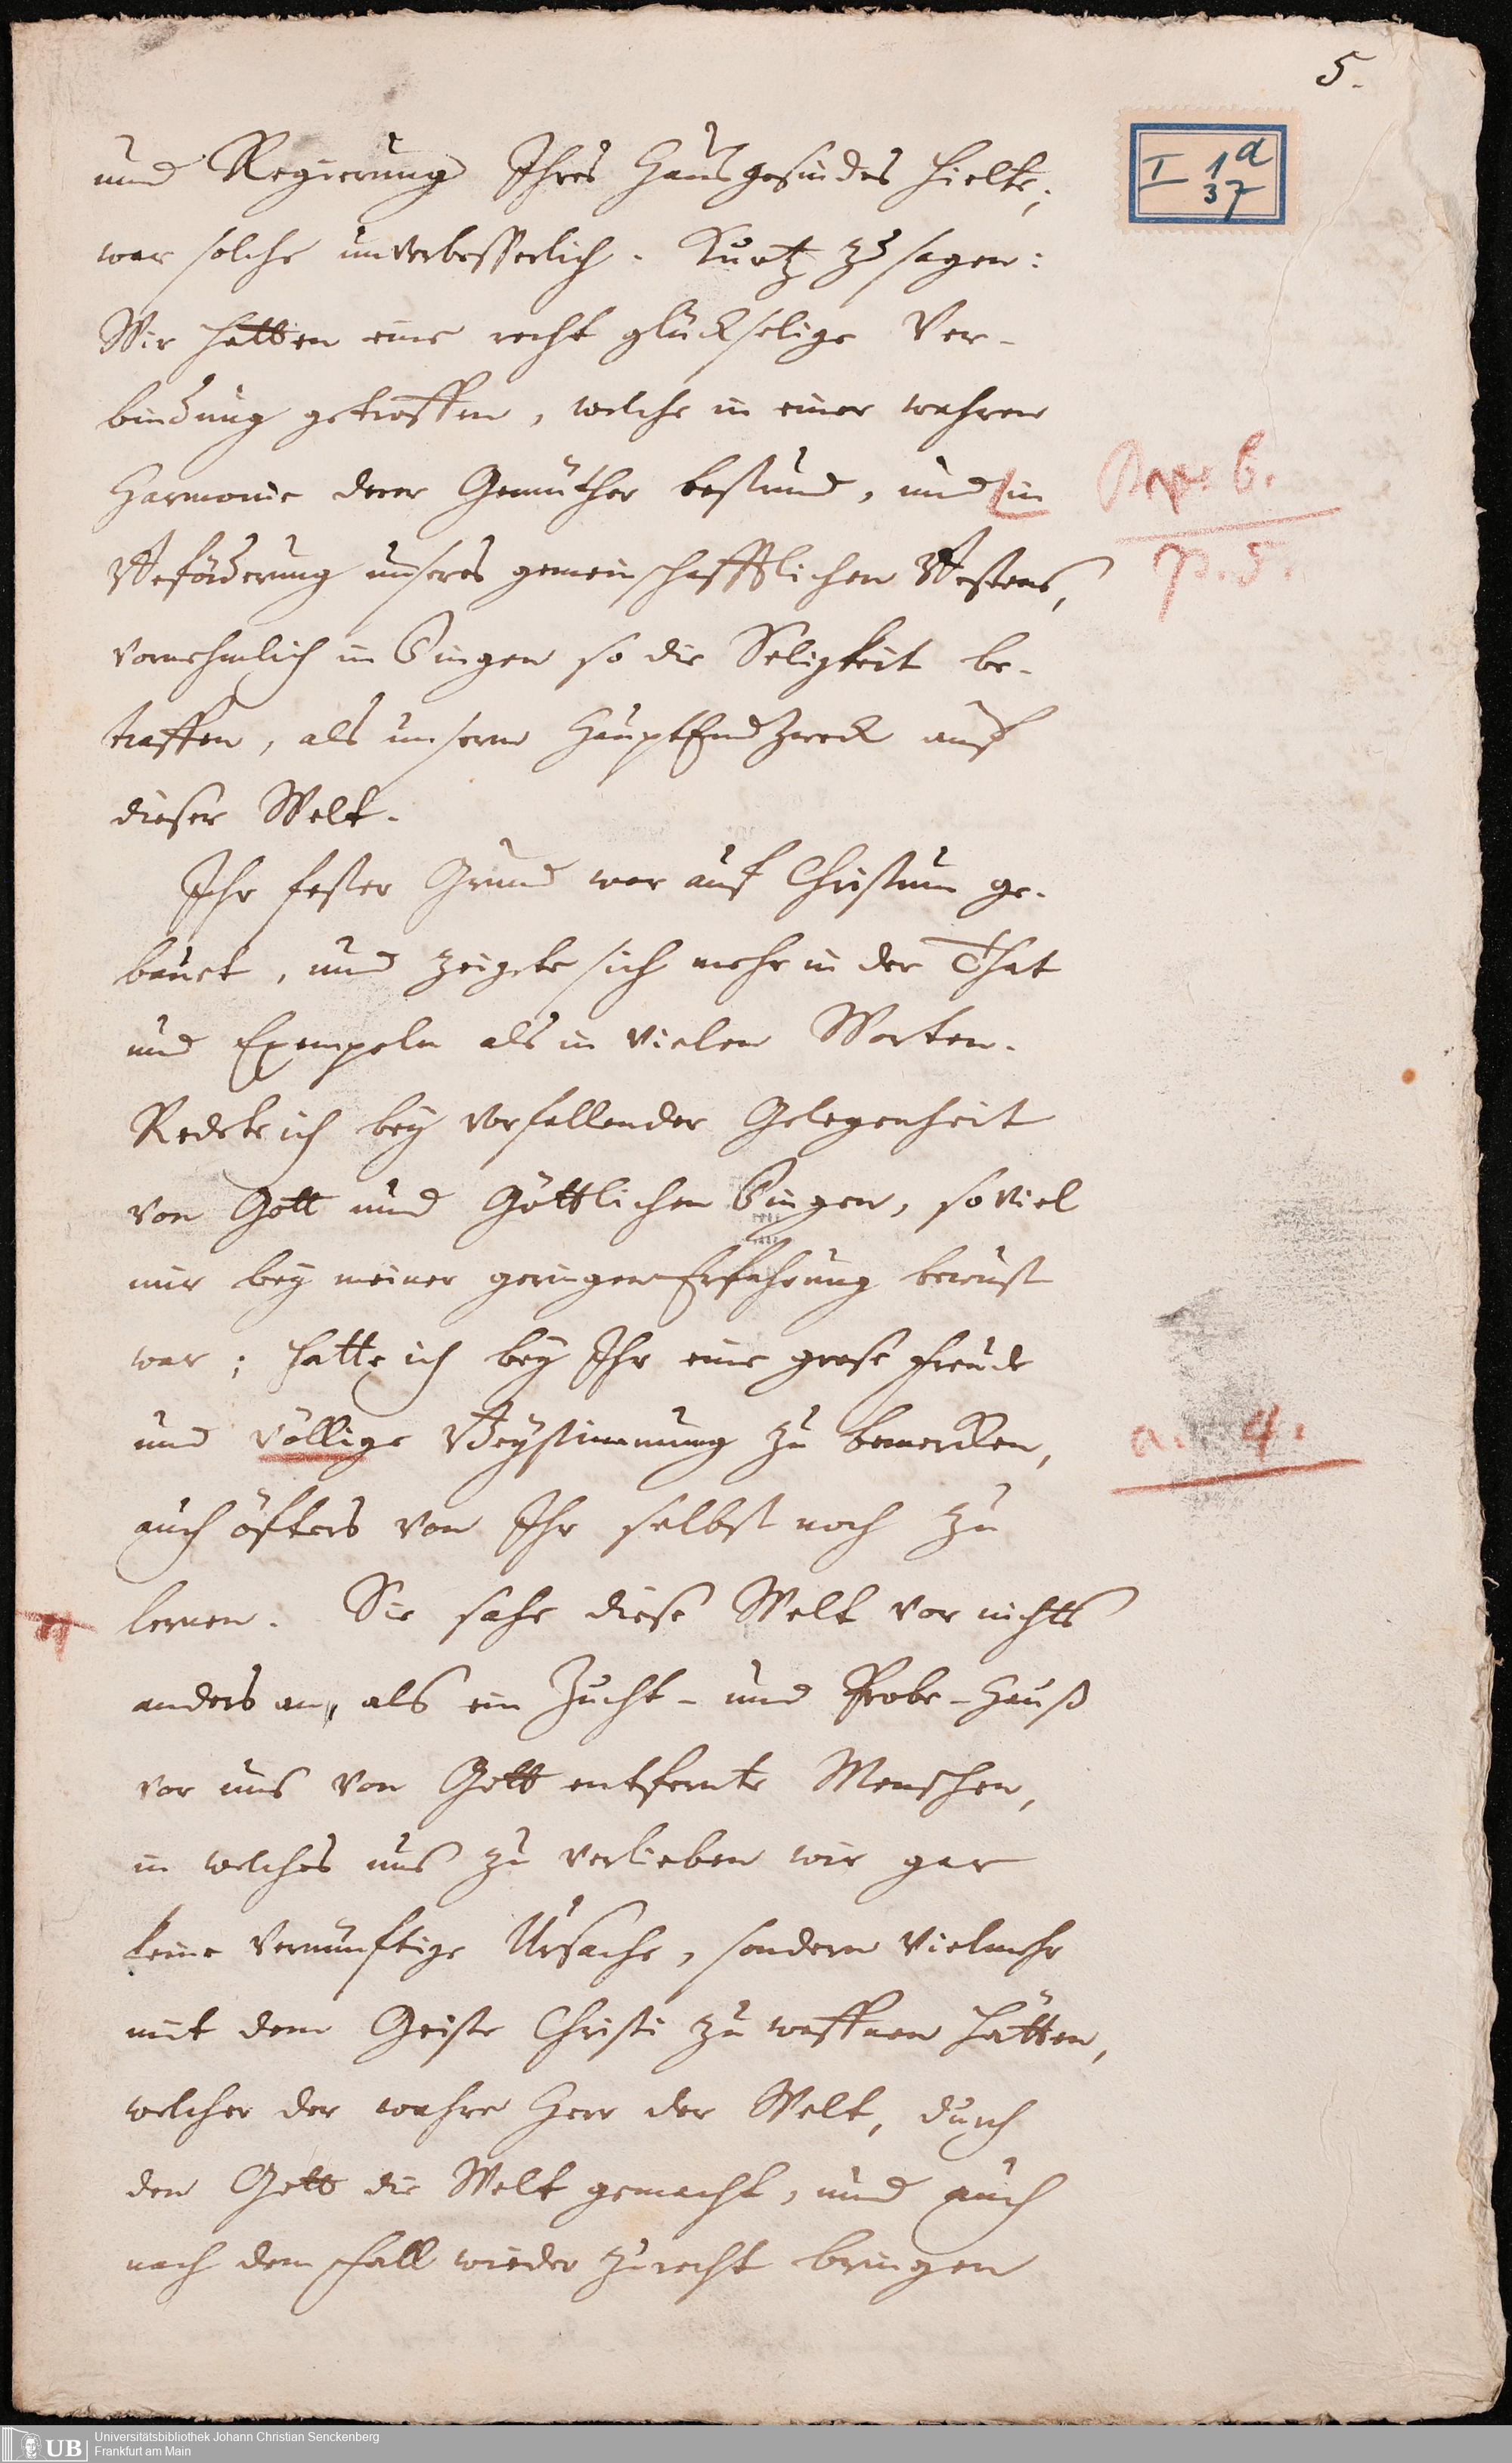 5.
I 1d
37
und Regierung Ihres Hausgesindes hielte,
war solche unverbesserlich. Kurtz zu sagen:
Wir hatten eine recht glückselige Ver-
bindung getroffen, welche in einer wahren
Harmonie derer Gemüther bestund, und in
Beförderung unseres gemeinschafftlichen Bestens,
vornehmlich in Dingen so die Seligkeit be-
traffen, als unserm HauptEndzweck auf
dieser Welt.
6.
p. 5.
Ihr fester Grund war auf Christum ge-
bauet, und zeigete sich mehr in der That
und Exempeln als in vielen Worten.
Redete ich bey vorfallender Gelegenheit
von Gott und Göttlichen Dingen, so viel
mir bey meiner geringen Erfahrung bewust
war; hatte ich bey Ihr eine grose Freude
und völlige Beystimmung zu bemercken,
a. 4.
auch öfters von Ihr selbst noch zu
lernen. Sie sahe diese Welt vor nichts
anders an, als ein Zucht- und Probe-Hauß
vor uns von Gott entfernte Menschen,
in welches uns zu verlieben wir gar
keine vernünftige Ursache, sondern vielmehr
mit dem Geiste Christi zu waffnen hätten,
welcher der wahre Herr der Welt, durch
den Gott die Welt gemacht, und auch
nach dem Fall wieder zurecht bringen
UB
Universitätsbibliothek Johann Christian Senckenberg
Frankfurt am Main